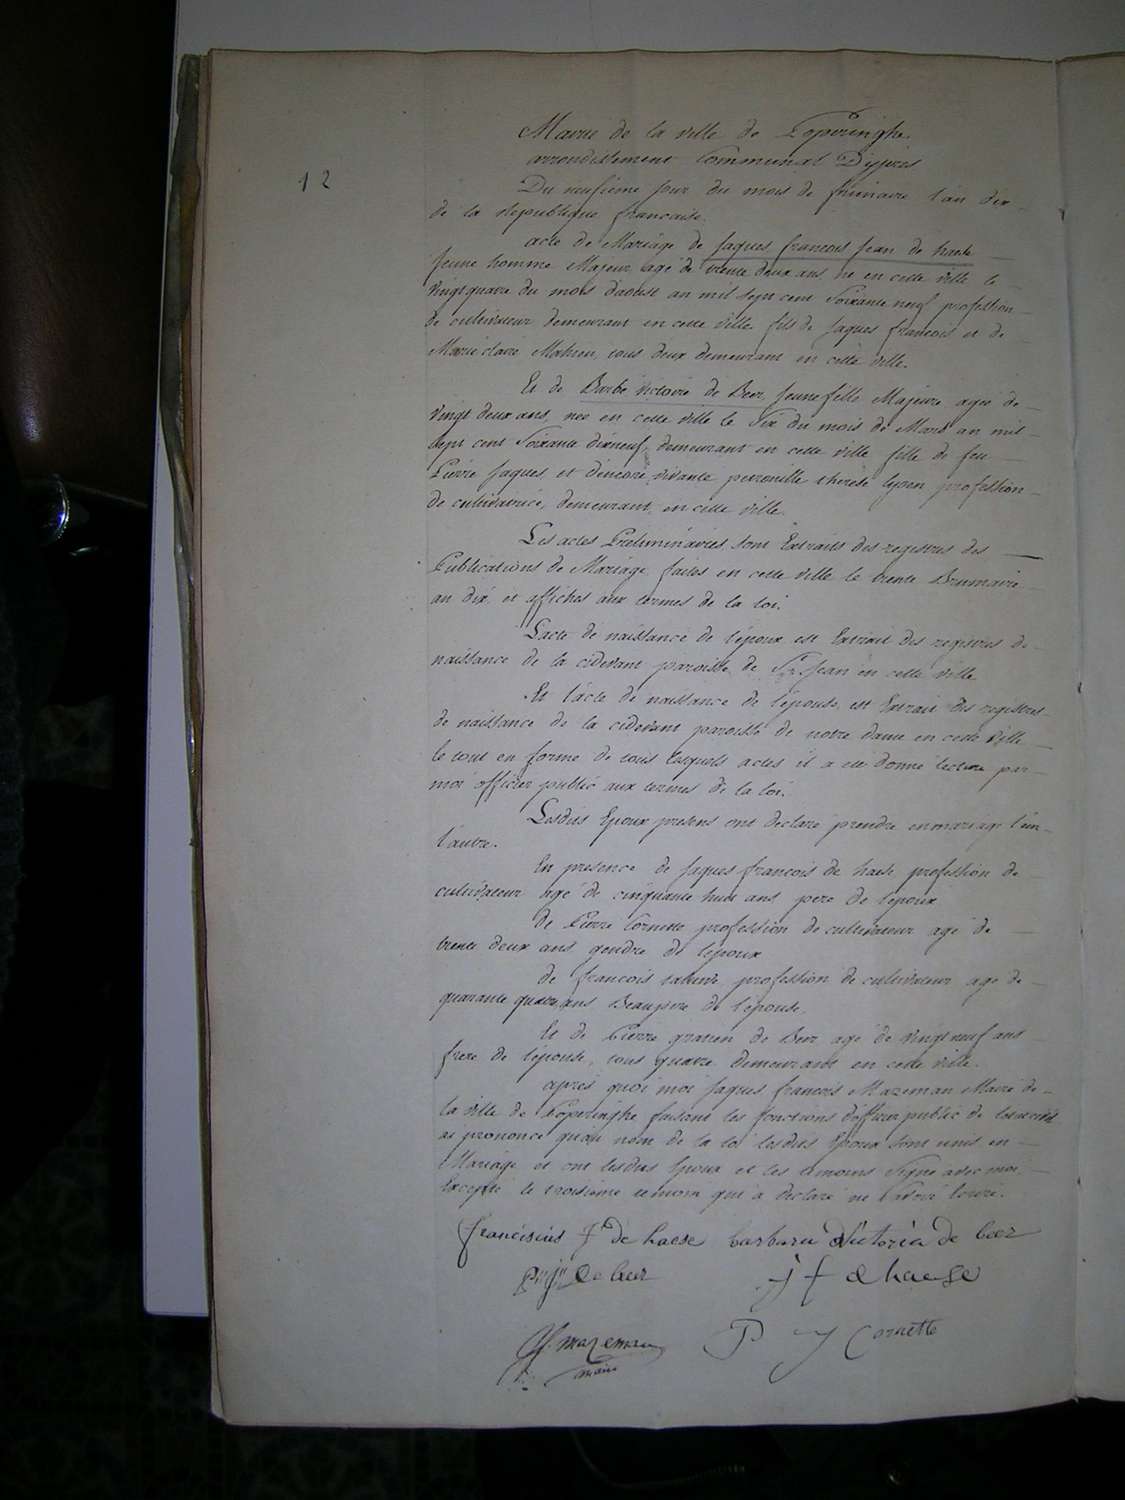 12
Mairie de la ville de Poperinghe
arrondissement Communal Dypres
Du neufieme jour du mois de frimaire l'an dix
de la Republique francaise.
acte de Mariage de Jaques francois Jean de haese
Jeune homme Majeur agé de trente deux ans né en cette ville le
vingt quatre du mois d'aoust an mil sept cent Soixante neuf profession
de cultivateur demeurant en cette ville fils de Jaques francois et de
Marie claire Mahieu, tous deux demeurant en cette ville.
Et de Barbe victoire de Beer Jeune fille Majeure agée de
vingt deux ans, nee en cette ville le Six du mois de Mars an mil
sept cent Soixante dixneuf, demeurant en cette ville fille de feu
Pierre Jaques et d'encore vivante petronille therese profession
de cultivatrice, demeurant en cette ville.
Les actes Preliminaires sont Extraits des registres des
Publications de Mariage faites en cette ville le trente Brumaire
an dix et affichés aux termes de la loi.
L'acte de naissance de l'époux est Extrait des registres de
naissance de la cidevant paroisse de St. Jean en cette ville
Et l'acte de naissance de l'épouse, est Extrait des registres
de naissance de la cidevant paroisse de notre dame en cette ville
le tout en forme de tous lesquels actes il a été donné lecture par
moi officier public aux termes de la loi.
Lesdits Epoux presens ont declaré prendre en mariage l'un
l'autre.
En presence de Jaques francois de haese profession de
cultivateur agé de cinquante huit ans pere de l'époux
de Pierre Cornette profession de cultivateur agé de
trente deux ans gendre de l'époux
de francois profession de cultivateur agé de
quarante quatre ans Beaupere de l'épouse.
Et de Pierre de Beer agé de vingt neuf ans
frere de l'épouse, tous quatre demeurant en cette ville.
après quoi moi Jaques francois Mazeman Maire de
la ville de Poperinghe faisant les fonctions d'officier public de
ai prononcé qu'au nom de la loi lesdits Epoux sont unis en
Mariage et ont lesdits Epoux et les temoins Signé avec moi
Excepté le troisieme temoin qui a declaré ne savoir
franciscus J de haese barbara victoria de beer
de beer j f d haese
mazeman P J Cornette
maire